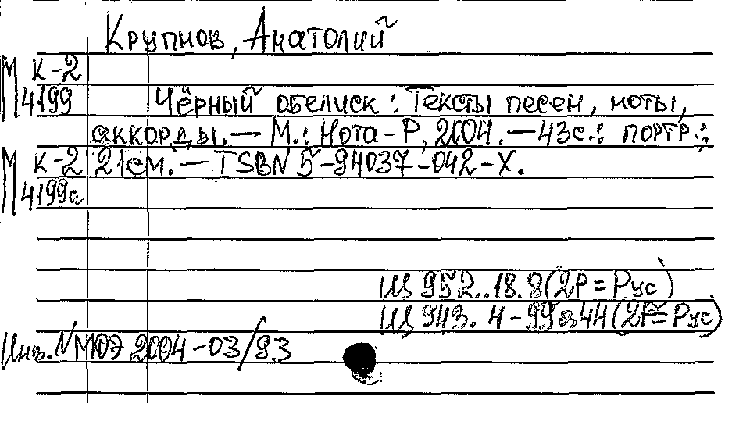 Крупнов, Анатолий
М К-2
4199
Чёрный обелиск : Тексты песен, ноты,
аккорды. — М.: Нота-Р, 2004. — 43с.: портр.;
М К-2 21см. — ISBN 5-94037-042-X.
4199а
Щ 952..18.8(2Р=Рус)
Щ 943. 4-99я44(2Р=Рус)
Инв. NМЮЭ 2004-03/93